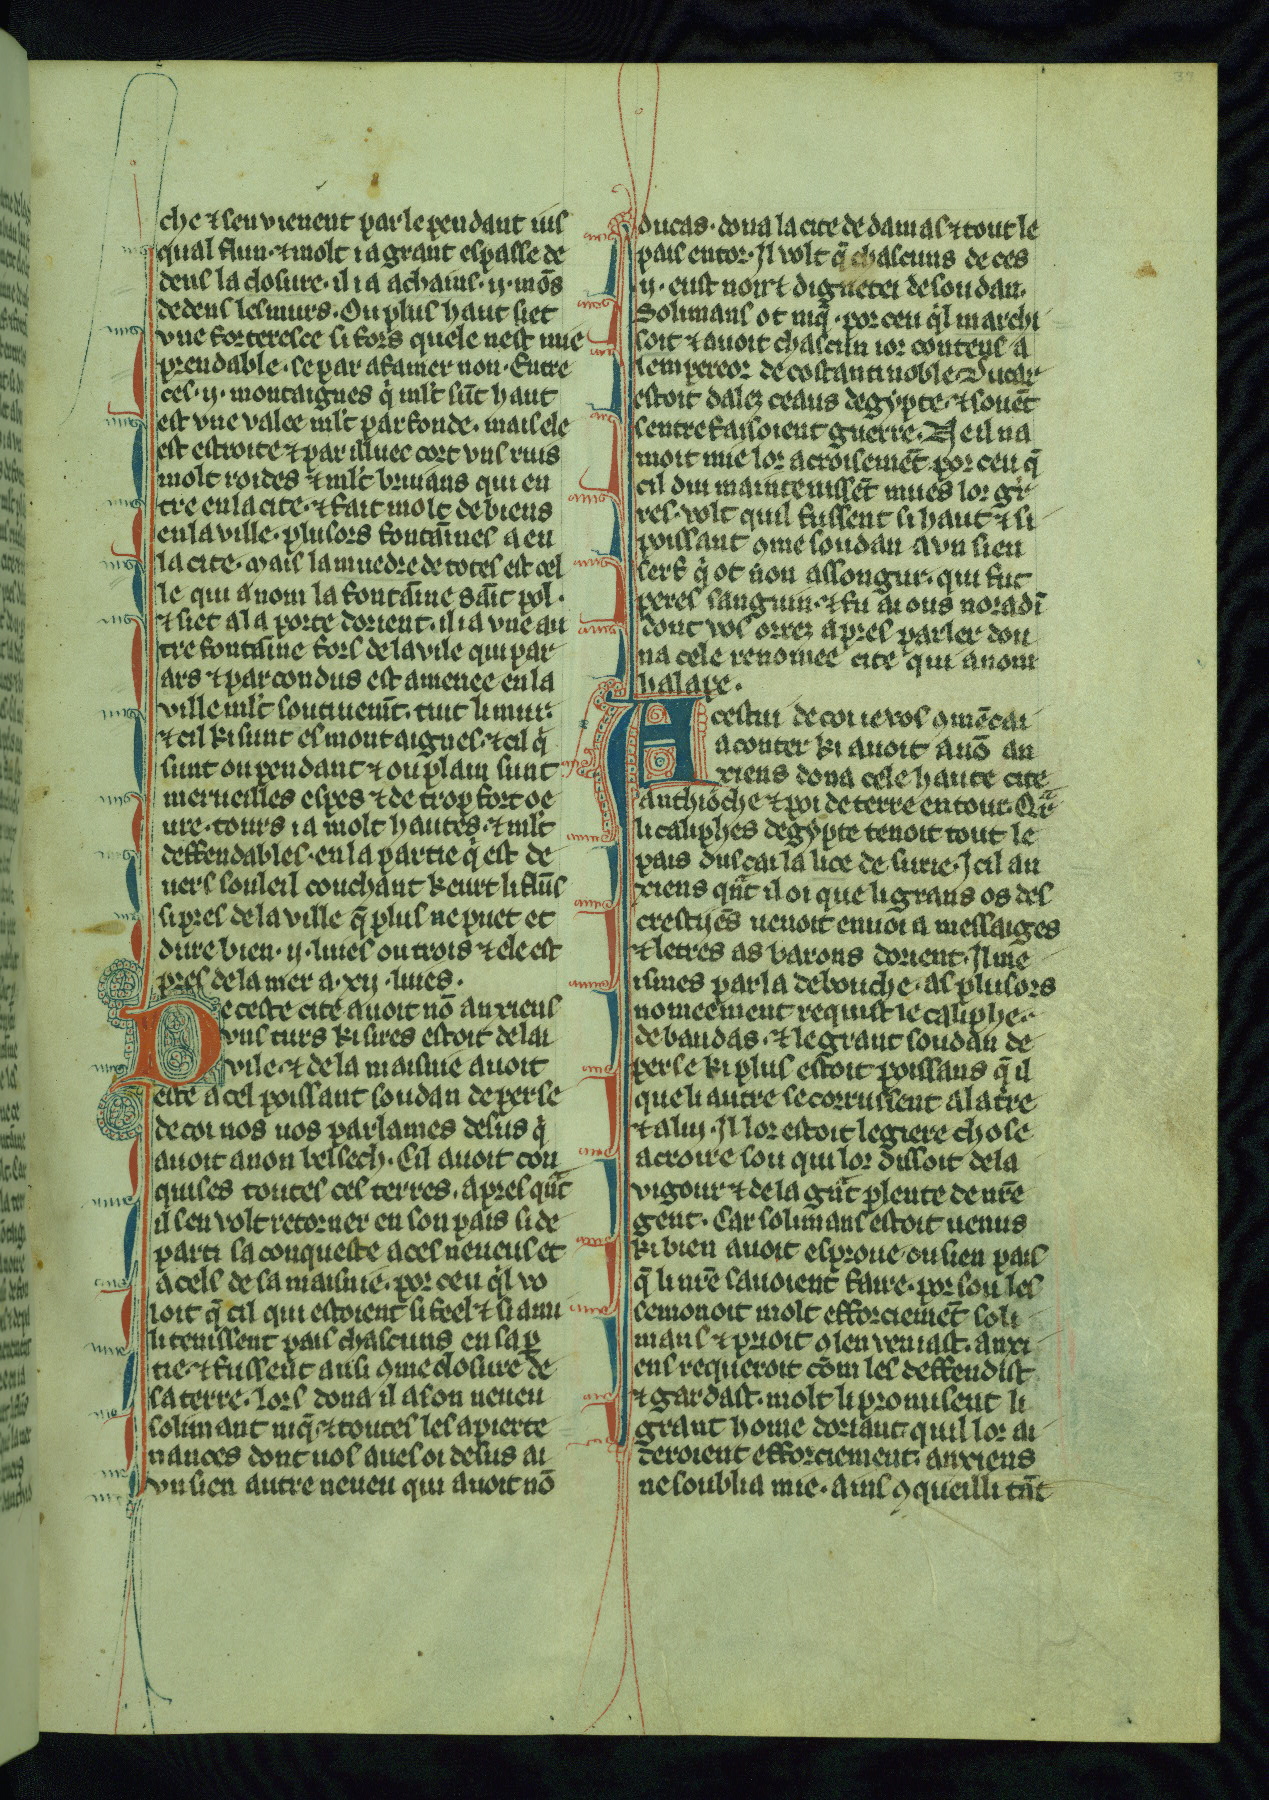 37
che ⁊ sen vienent par le pendant iuſ
qual flun · ⁊ molt i a grant espasse de
denſ la closure · il i a achainſ · ij · mōs
dedenſ les murs · Ou plus haut siet
vne forteresce si fors quele nest mie
prendable · se par afamer non · Entre
ces · ij · montaignes q̇ ml't sūt haut
est vne valee ml't parfonde · mais ele
est estroite ⁊ par illuec cort vns ruis
molt roides ⁊ ml't bruians qui en
tre en la cite · ⁊ fait molt de biens
en la ville · plusors fontaīnes a en
la cite · Mais la miedre de totes est cel
le qui a nom la fontaīne saīt pol ·
⁊ siet a la porte dorient · il i a vne au
tre fontaīne fors de la vile qui par
ars ⁊ par condus est amenee en la
ville ml't soutiuem̄t · tuit li mur ·
⁊ cil ki sunt es montaignes · ⁊ cil q̇
sunt ou pendant ⁊ ou plain sunt
merueilles espes ⁊ de trop fort oe
ure · tours i a molt hautes · ⁊ ml't
deffendables · en la partie q̇ est de
uers souleil couchant keurt li flūs
si pres de la ville q̄ plus ne puet et
dure bien · ij · liues ou trois ⁊ ele est
pres de la mer a · xij · liues ·
De ceste cite auoit nō anxiens
vns turs ki sires estoit de lai
vile · ⁊ de la maisnie auoit
este a cel poissant soudan de perse
de coi nos uos parlames desus q̇
auoit a non belsech · Cil auoit con
quises toutes ces terres · apres qūt
il sen volt retorner en son pais si de
parti sa conqueste a ces neueus et
a cels de sa maisnie · por ceu q̇l vo
loit q̄ cil qui estoient si feel ⁊ si ami
li tenissent pais chascuns en sa ꝑ
tie · ⁊ fussent ausi ꝯme closure de
sa terre · Lors dona il a son neueu
solimant niq̄ · ⁊ toutes les apierte
nances dont uos aues oi desus ai
vn sien autre neueu qui auoit nō
ducas · dona la cite de damas ⁊ tout le
pais entor · Il volt q̄ chascuns de ces
ij · eust nom ⁊ dignetei de soudan ·
Solimans ot niq̄ · por ceu q̇l marchi
soit ⁊ auoit chascun ior contens a
lempereor de costantinoble · Ducas
estoit dalez ceaus degypte · ⁊ souēt
sentrefaisoient guerre · De il na
moit mie lor acroisemēt por ceu q̄
cil dui maintenissēt mues lor gr̄
res · volt quil fussent si haut ⁊ si
poissant ꝯme soudan · A vn sien
serf q̇ ot non assongur · qui fut
peres sanguin · ⁊ fu aious noradī
dont vos orrez apres parler don
na cele renomee cite qui a nom
halape ·
A cestui de coi ie vos ꝯmēcai
a conter ki auoit a nō an
xiens dona cele haute cite
anthioche ⁊ poi de terre entour · Qr̄
li caliphes degypte tenoit tout le
pais dusca la lice de surie · Icil an
xiens qūt il oi que li grans os des
crestiēs uenoit enuoia messaiges
⁊ letres as barons dorient · Il me
ismes parla de bouche · as plusors
nomeement requist le caliphe ·
de baudas · ⁊ le grant soudan de
perse ki plus estoit poissans q̄ il
que li autre secorrussent a la t̄re
⁊ a lui · Il lor estoit legiere chose
a croire son qui lor dissoit de la
vigour ⁊ de la gn̄t plente de nr̄e
gent · Car solimans estoit uenus
ki bien auoit esproue ou sien pais
q̄ li nr̄e sauoient faire · por sou les
semonoit molt efforciemēt soli
mans ⁊ prioit ꝯ len veniast · anxi
ens requeroit com les deffendist
⁊ gardast · molt li promisent li
grant home doriant · quil lor ai
deroient efforciement · anxiens
ne soublia mie · ains ꝯqueilli tāt